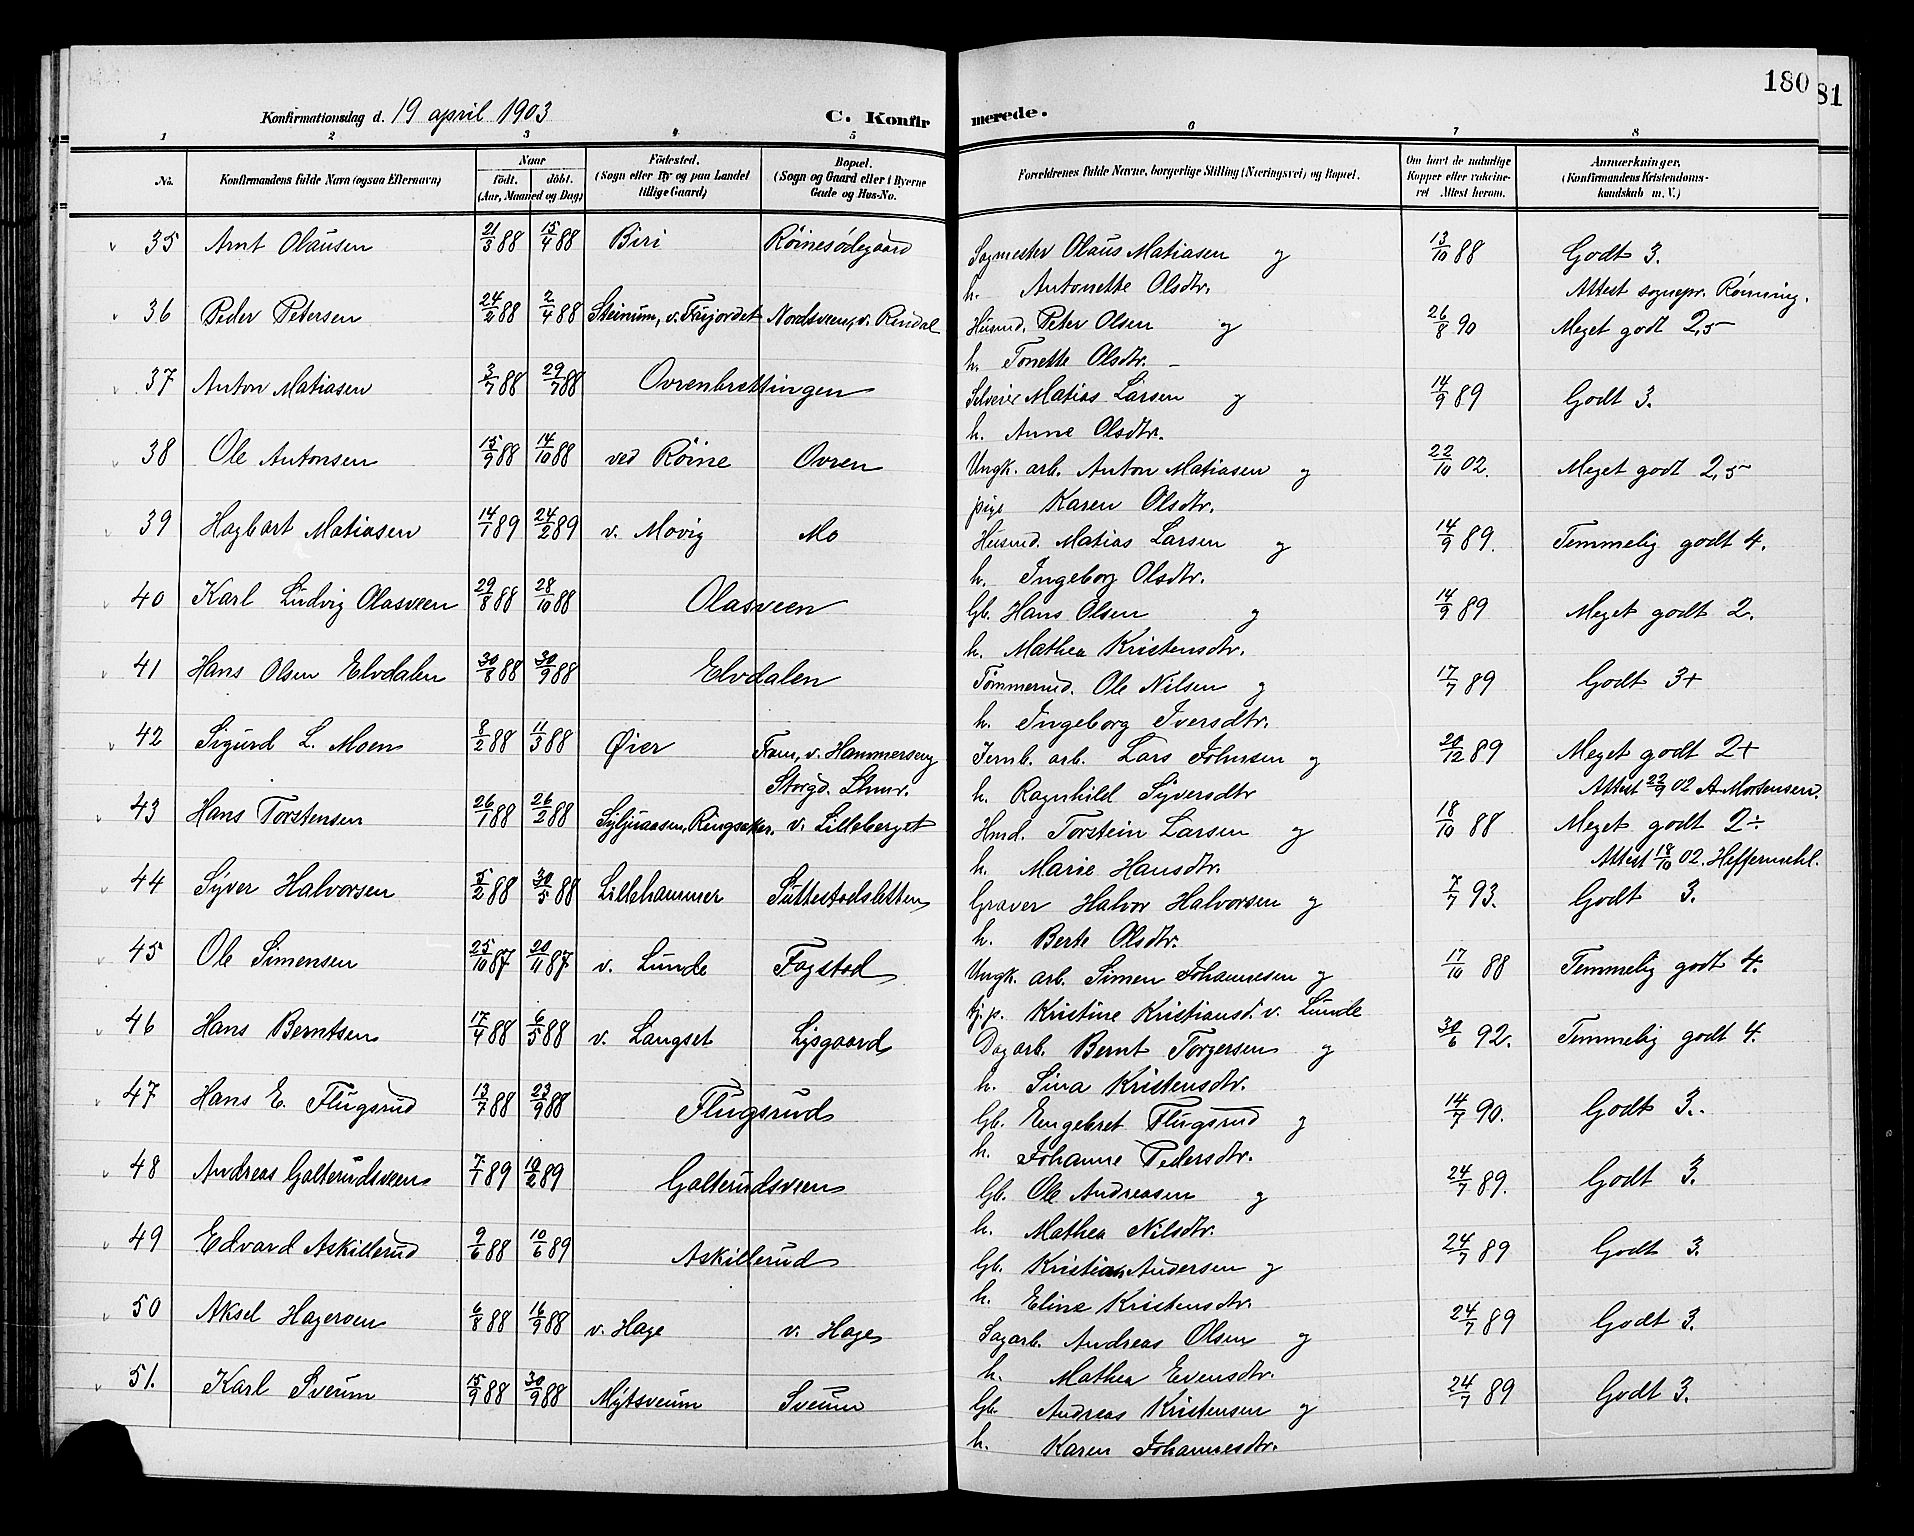 180
81
Konfirmationsdag d. 19 april 1903
C. Konfirmerede.
1 2 3 4 5 6 7 8
No. Konfirmandens fulde Navn (ogsaa Efternavn) Naar födt. döbt. (Aar, Maaned og Dag) Födested. (Sogn eller By og paa Landet tillige Gaard) Bopæl. (Sogn og Gaard eller i Byerne Gade og Hus-No. Forældrenes fulde Navne, borgerlige Stilling (Næringsvei) og Bopæl. Om havt de naturlige Kopper eller vakcineret Attest herom. Anmærkninger. (Konfirmandens Kristendomskundskab m. V.)
35 Arnt Olausen 21/3 88 15/4 88 Biri Röinesödegaard Sagmester Olaus Matiasen og 13/10 88 Godt 3.
h. Antonette Olsdtr. Attest sognepr. Rönning.
36 Peder Petersen 24/2 88 2/4 88 Steinum, v. Furjordet Nordsveen, v. Rindal Husmd. Peter Olsen og 26/8 90 Meget godt 2,5
h. Tonette Olsdtr. –
37 Anton Matiasen 3/7 88 29/7 88 Ovrenbrettingen Selveier Matias Larsen og 14/9 89 Godt 3.
h. Anne Olsdtr.
38 Ole Antonsen 15/9 88 14/10 88 ved Röine Ovren Ungk. arb. Anton Matiasen og 22/10 02. Meget godt 2,5
pige Karen Olsdtr.
39 Hagbart Matiasen 14/1 89 24/2 89 v. Movig Mo Husmd. Matias Larsen og 14/9 89. Temmelig godt 4.
h. Ingeborg Olsdtr.
40 Karl Ludvig Olasveen 29/8 88 28/10 88 Olasveen Gb. Hans Olsen og 14/9 89 Meget godt 2.
h. Mathea Kristensdtr.
41 Hans Olsen Elvdalen 30/8 88 30/9 88 Elvdalen Tömmermd. Ole Nilsen og 17/7 89 Godt 3+
h. Ingeborg Iversdtr.
42 Sigurd L. Moen 8/2 88 11/3 88 Øier Fram, v. Hammerseng Jernb. arb. Lars Johnsen og 20/12 89 Meget godt 2+
Storgd. Lhmr. h. Ragnhild Syversdtr Attest 22/9 02 A. Mortensen.
43 Hans Torstensen 26/1 88 26/2 88 Syljuaasen, Ringsaker. v. Lilleberget Hmd. Torstein Larsen og 18/10 88 Meget godt 2÷
h. Marie Hansdtr. Attest 18/10 02. Heffermehl.
44 Syver Halvorsen 5/2 88 30/5 88 Lillehammer Suttestadsletten Graver Halvor Halvorsen og 7/7 93. Godt 3.
h. Berte Olsdtr.
45 Ole Simensen 25/10 87 20/11 87 v. Lunde Fagstad Ungk. arb. Simen Johannesen og 17/10 88 Temmelig godt 4.
tj. p. Kristine Kristiansd. v. Lunde
46 Hans Berntsen 17/4 88 6/5 88 v. Langset Lysgaard Dagarb. Bernt Torgersen og 30/6 92. Temmelig godt 4.
h. Sina Kristensdtr.
47 Hans E. Flugsrud 13/7 88 23/9 88 Flugsrud Gb. Engebret Flugsrud og 14/7 90. Godt 3.
h. Johanne Pedersdtr.
48 Andreas Galterudsveen 7/1 89 10/2 89 Galterudsveen Gb. Ole Andreasen og 24/7 89. Godt 3.
h. Mathea Nilsdtr.
49 Edvard Askillerud 9/6 88 10/6 89 Askillerud Gb. Kristian Andersen og 24/7 89 Godt 3.
h. Eline Kristensdtr.
50 Aksel Hageroen 6/8 88 16/9 88 v. Hage v. Hage Sagarb. Andreas Olsen og 24/7 89 Godt 3.
h. Mathea Evensdtr.
51. Karl Sveum 15/9 88 30/9 88 Mytsveum Sveum Gb. Andreas Kristensen og 24/7 89 Godt 3.
h. Karen Johannesdtr.